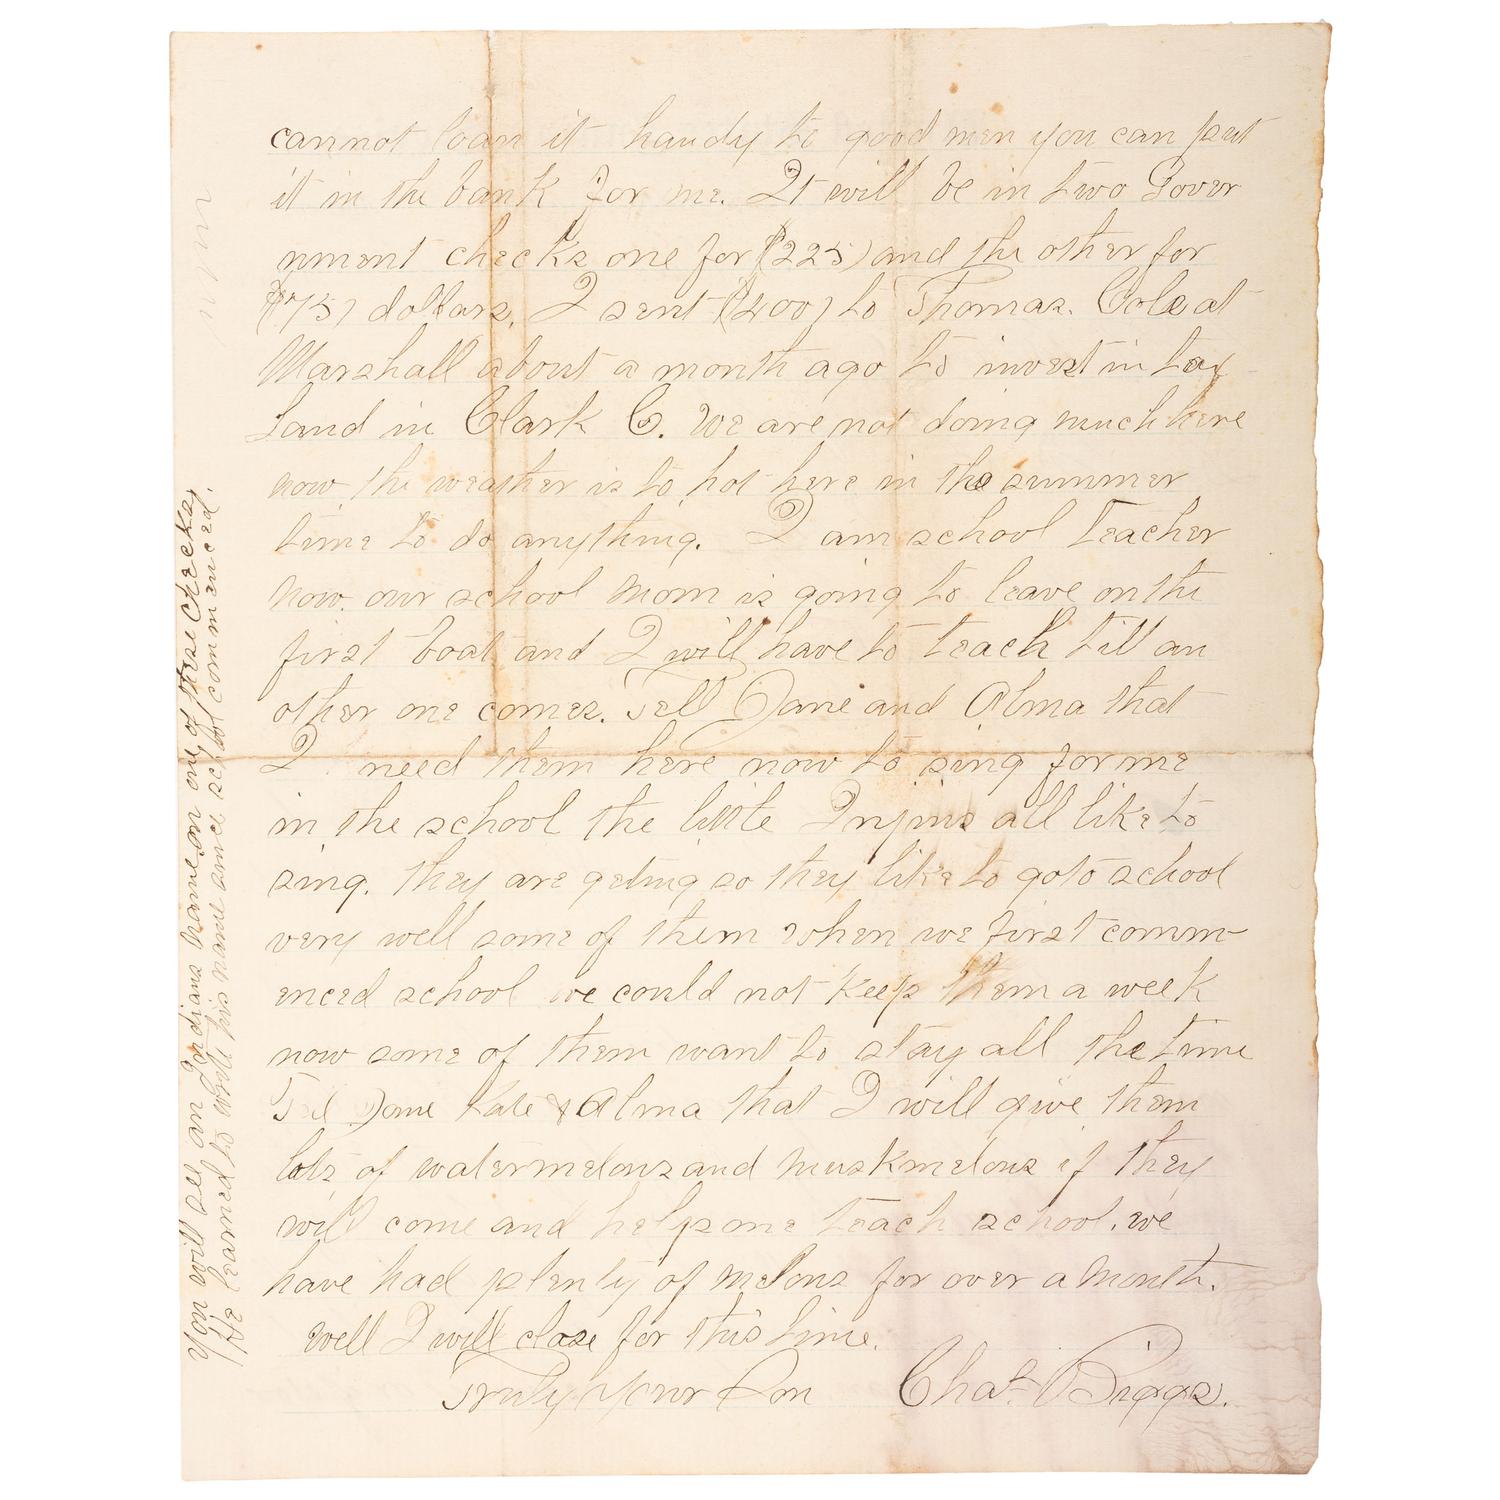 cannot loan it handy to good men you can put
it in the bank for me. It will be in two Gover
nment checks one for ($225) and the other for
($75) dollars. I sent ($400) to Thomas. Cole at
Marshall about a month ago to invest in tax
Land in Clark Co. We are not doing much here
now the weather is to hot here in the summer
time to do anything. I am school Teacher
now. our school mom is going to leave on the
first boat and I will have to teach till an
other one comes. Tell Jane and Alma that
I need them here now to sing for me
in the school the little Injins all like to
sing. they are geting so they like to go to school
very well some of them when we first comm-
enced school we could not keep them a week
now some of them want to stay all the time
Tel Jane Kate & Alma that I will give them
lots of watermelons and muskmelons if they
will come and help me teach school. we
have had plenty of melons for over a month.
well I will close for this time.
Truly Your Son Chas. Biggs.
You will see an Indians name on one of these checks,
He learned to write his name since school commenced.